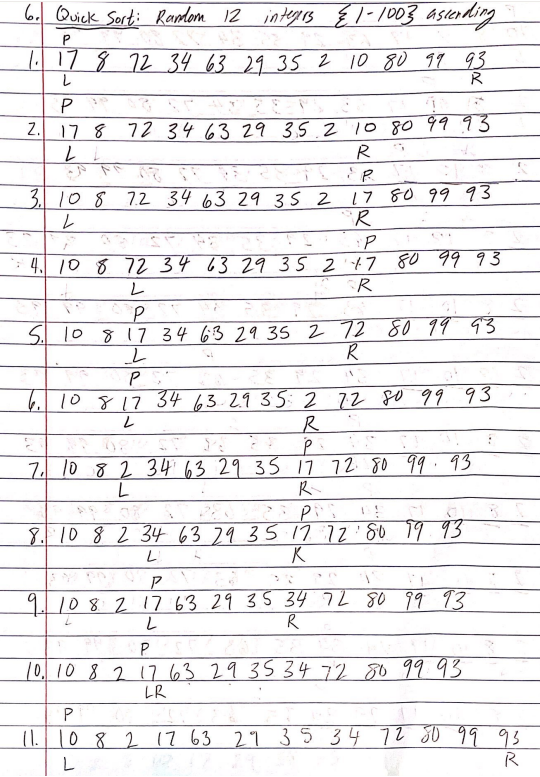 6. Quick Sort: Random 12 integers {1-100} ascending
P
1. 17 8 72 34 63 29 35 2 10 80 99 93
L R
P
2. 17 8 72 34 63 29 35 2 10 80 99 93
L R
P
3. 10 8 72 34 63 29 35 2 17 80 99 93
L R
P
4. 10 8 72 34 63 29 35 2 17 80 99 93
L R
P
5. 10 8 17 34 63 29 35 2 72 80 99 93
L R
P
6. 10 8 17 34 63 29 35 2 72 80 99 93
L R
P
7. 10 8 2 34 63 29 35 17 72 80 99 93
L R
P
8. 10 8 2 34 63 29 35 17 72 80 99 93
L R
P
9. 10 8 2 17 63 29 35 34 72 80 99 93
L R
P
10. 10 8 2 17 63 29 35 34 72 80 99 93
LR
P
11. 10 8 2 17 63 29 35 34 72 80 99 93
L R